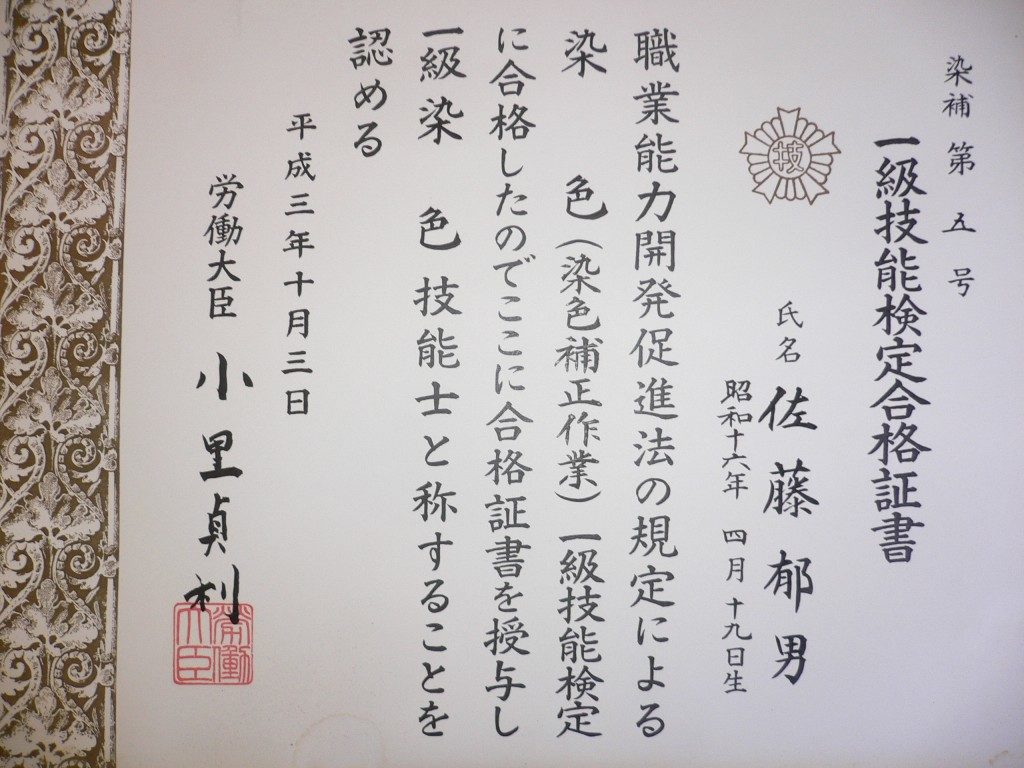 染補第五号
一級技能検定合格証書
技
氏名 佐藤郁男
昭和十六年 四月 十九日生
職業能力開発促進法の規定による
染 色(染色補正作業)一級技能検定
に合格したのでここに合格証書を授与し
一級染 色技能士と称することを
認める
平成三年十月三日
労働大臣 小里貞利
労働大臣